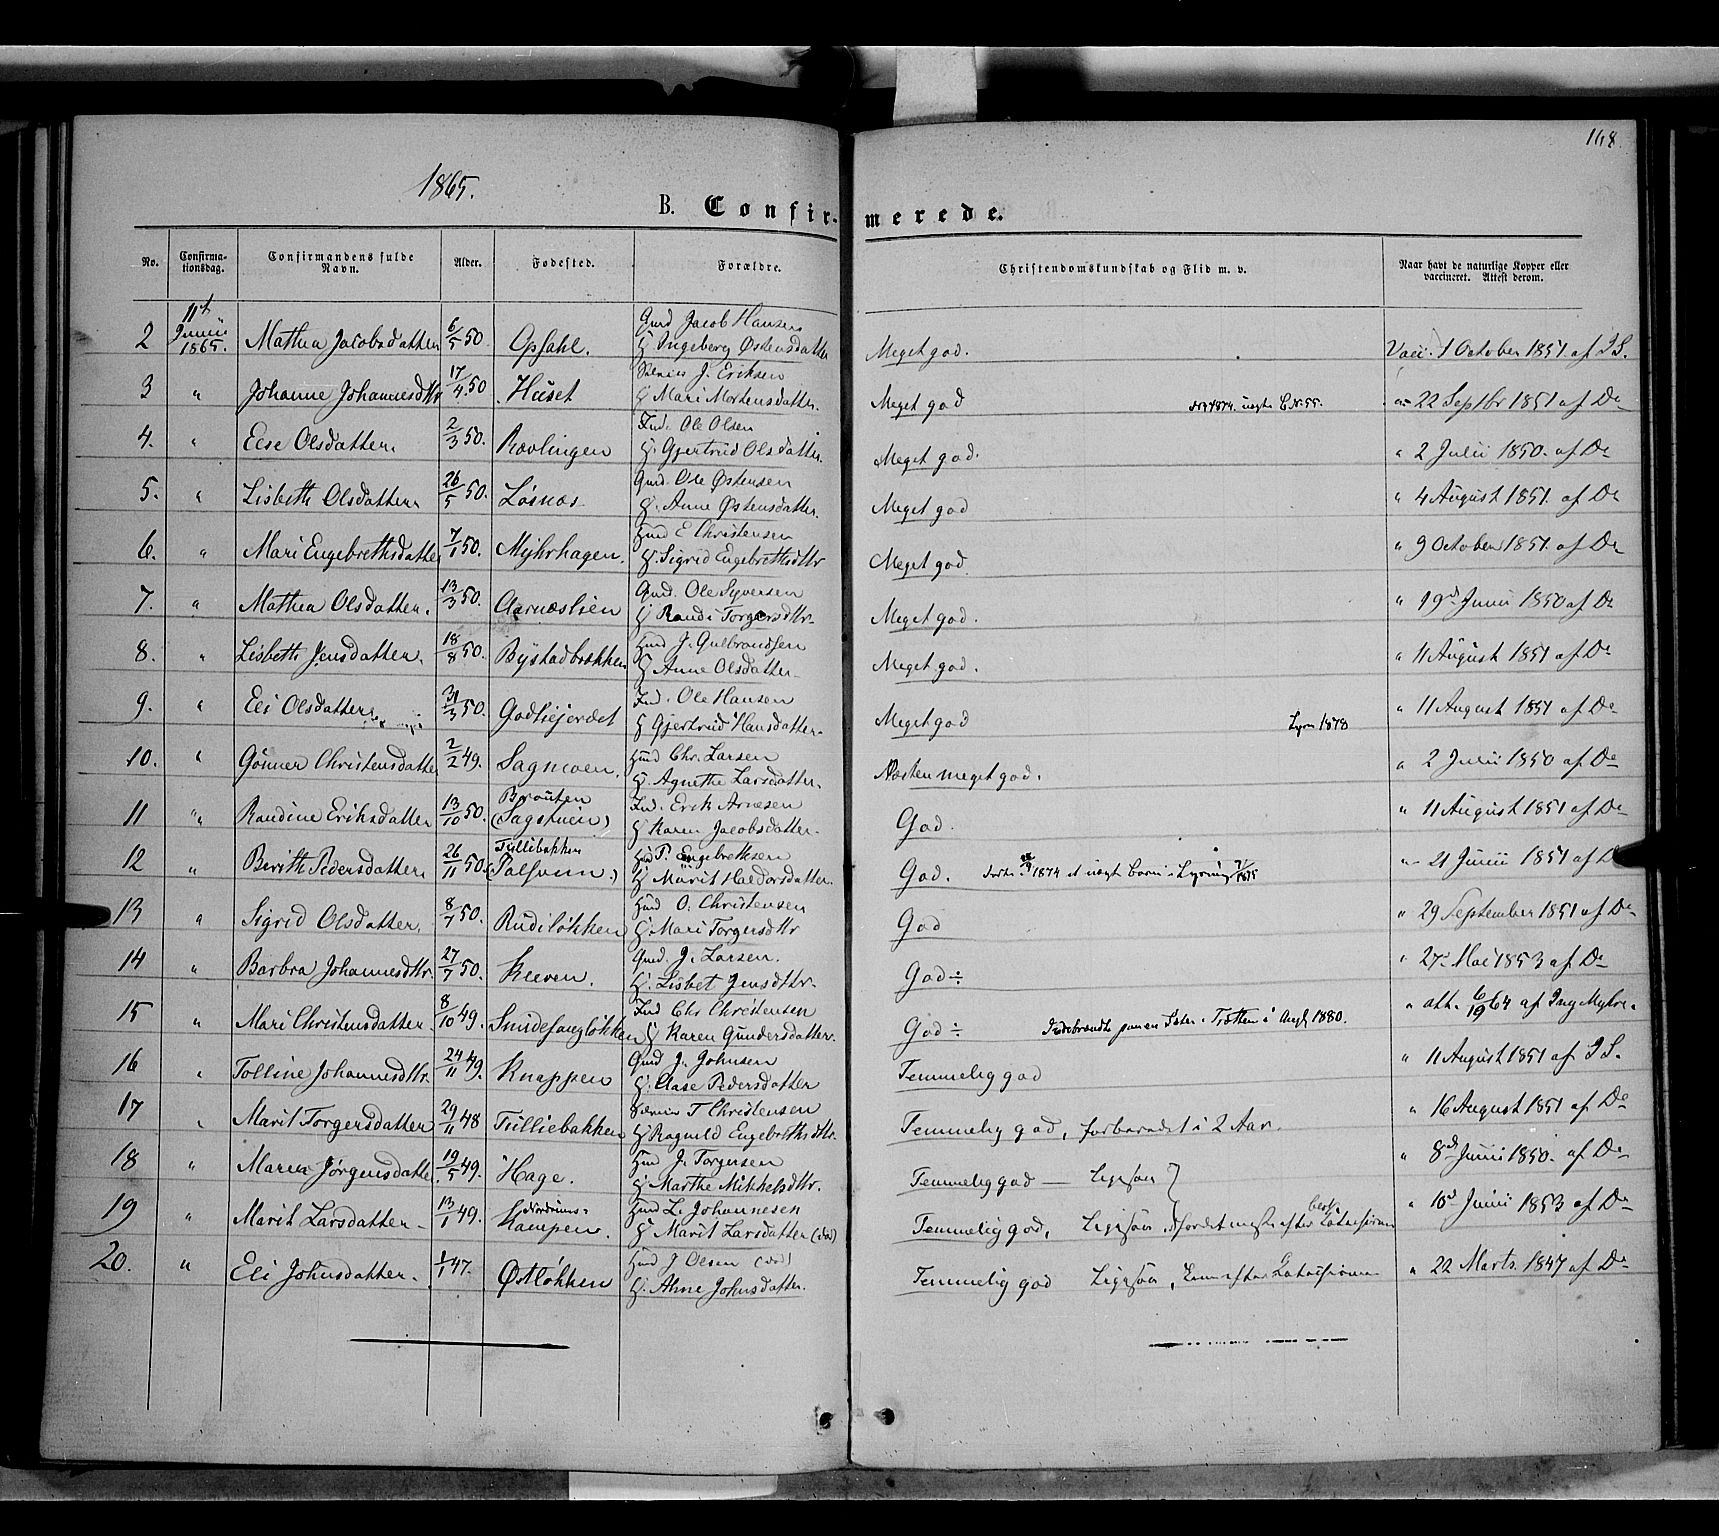 168.
1865.
B. Confirmerede.
No. Confirmationsdag. Confirmandens fulde Navn. Alder. Fødested. Forældre. Christendomskundskab og Flid m. v. Naar havt de naturlige Kopper eller vaccineret. Attest derom.
2 11t Junii 1865. Mathea Jacobsdatter 6/5 50 Opsahl. Gmd Jacob Hansen H Ingeberg Østensdatter Meget god. Vacc. 1 October 1851 af I S.
3 " Johanne Johannesdtr 17/4 50 Huset J. Eriksen H Mari Mortensdatter. Meget god 1874. uægte C. N. 55. " 22 Septbr 1851 af Do
4. " Eese Olsdatter. 2/3 50. Rævlingen Ind. Ole Olsen H. Gjertrud Olsdatter. Meget god. " 2 Julii 1850. af Do
5. " Lisbeth Olsdatter. 26/5 50. Løsnæs Gmd. Ole Østensen H. Anne Østensdatter. Meget god " 4 August 1851. af Do
6. " Mari Engebrethsdatter 7/1 50. Myhrhagen. Hmd E Christensen H. Sigrid Engebrethsdtr Meget god " 9 October 1851. af Do
7. " Mathea Olsdatter. 13/3 50. Aarnæslien Gmd. Ole Syversen H Randi Torgersdtr. Meget god. " 19d Junii 1850 af Do
8. " Lisbeth Jensdatter. 18/8 50. Bystadbrækken Hmd J. Gulbrandsen H Anne Olsdatter. Meget god. " 11 August 1851 af Do
9. " Eli Olsdatter. 31/3 50. Godliejordet Ind. Ole Hansen H Gjertrud Hansdatter. Meget god Lysn 1878 " 11 August 1851 af Do
10. " Gønner Christensdatter 2/2 49. Sagmoen. Hmd Chr. Larsen H. Agnethe Larsdatter. Næsten meget god. " 2 Julii 1850 af Do
11 " Randine Eriksdatter 13/10 50. Braaten (Sagstuen) Ind. Erik Arnesen H Karen Jacobsdatter. God. " 11 August 1851 af Do
12 " Berith Pedersdatter. 26/11 50. Tulliebakken Hmd P. Engebrethsen H Marit Haldorsdatter. God. 1874 et uægte Barn. Lysning 7/1 1875 " 21 Junii 1851 af D
13 " Sigrid Olsdatter. 8/7 50. Rudiløkken Hmd O. Christensen H Mari Torgersdtr God " 29 September 1851 af Do
14 " Barbra Johannesdtr. 27/7 50. Kleeven. Gmd. J. Larsen. H. Lisbet Jensdtr. God ÷ " 27. Mai 1853 af Do
15 " Mari Christensdatter 8/10 49. Smidesangløkken Ind Chr Christensen H Karen Gundersdatter. God ÷ Indebrændte paa en Sæter i Trætten i Augt 1880. " att. 6/19 64 af Ing Myhre.
16 " Tolline Johannesdtr. 24/11 49. Knappen Gmd J. Johnsen H. Aase Pedersdatter Temmelig god " 11 August 1851 af I S.
17 " Marit Torgersdatter 29/11 48 Tulliebakken T Christensen H Ragnild Engebrethsdtr. Temmelig god, forberedet i 2 Aar. " 16 August 1851 af Do
18 " Maren Jørgensdatter 19/5 49. Hage. Hmd J. Torgersen H Marthe Mikkelsdtr. Temmelig god — Ligesaa " 8d Junii 1850. af Do
19 " Marit Larsdatter 13/1 49. Nordrums- Kampen. Hmd L. Johannesen H Marit Larsdatter (død) Temmelig god, Ligesaa " 10d Junii 1853 af Do
20. " Eli Johnsdatter. 1/1 47. Østløkken Hmd J Olsen (død) H. Anne Johnsdatter. Temmelig god Ligesaa, " 22 Marts. 1847 af Do